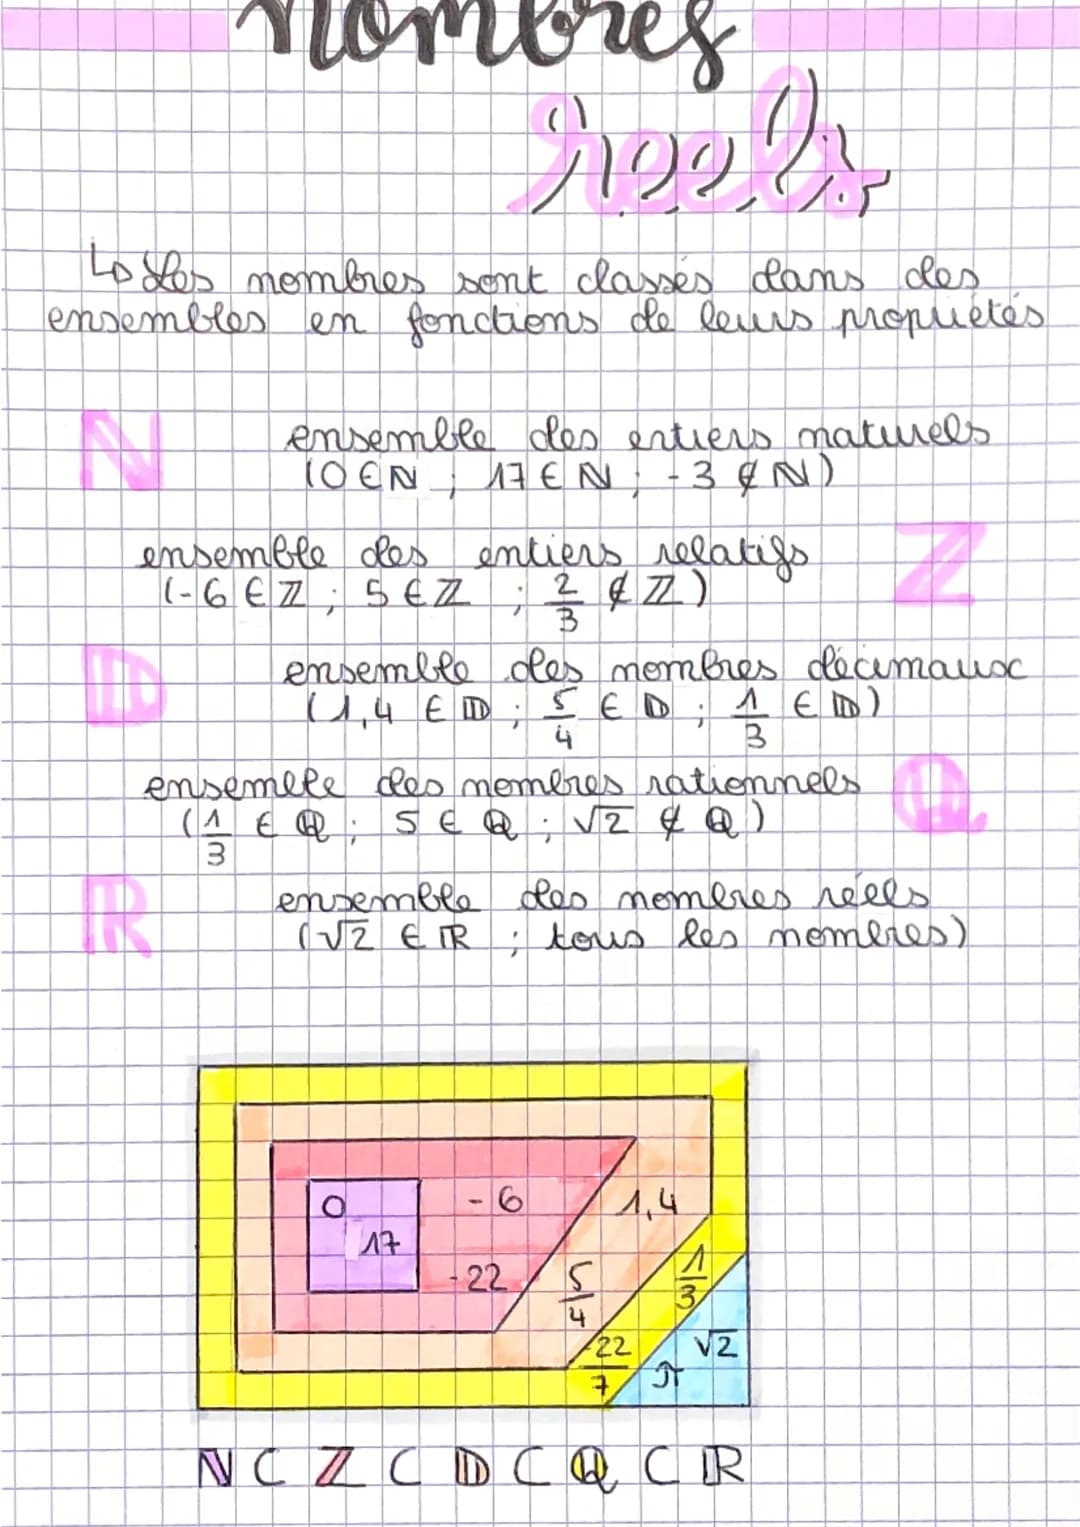 nombres
réels
↳ Les nombres sont classés dans des
ensembles en fonctions de leurs propriétés
N
ensemble des entiers naturels
(0 ∈ ℕ ; 17 ∈ ℕ ; -3 ∉ ℕ)
ensemble des entiers relatifs
Z
(-6 ∈ ℤ ; 5 ∈ ℤ ; 2/3 ∉ ℤ)
ID
ensemble des nombres décimaux
(1,4 ∈ 𝔻 ; 5/4 ∈ 𝔻 ; 1/3 ∈ 𝔻)
ensemble des nombres rationnels
Q
(1/3 ∈ ℚ ; 5 ∈ ℚ ; √2 ∉ ℚ)
ℝ
ensemble des nombres réels
(√2 ∈ ℝ ; tous les nombres)
0 -6 1,4
17
-22 5/4 1/3
-22/7 π √2
ℕ ⊂ ℤ ⊂ 𝔻 ⊂ ℚ ⊂ ℝ